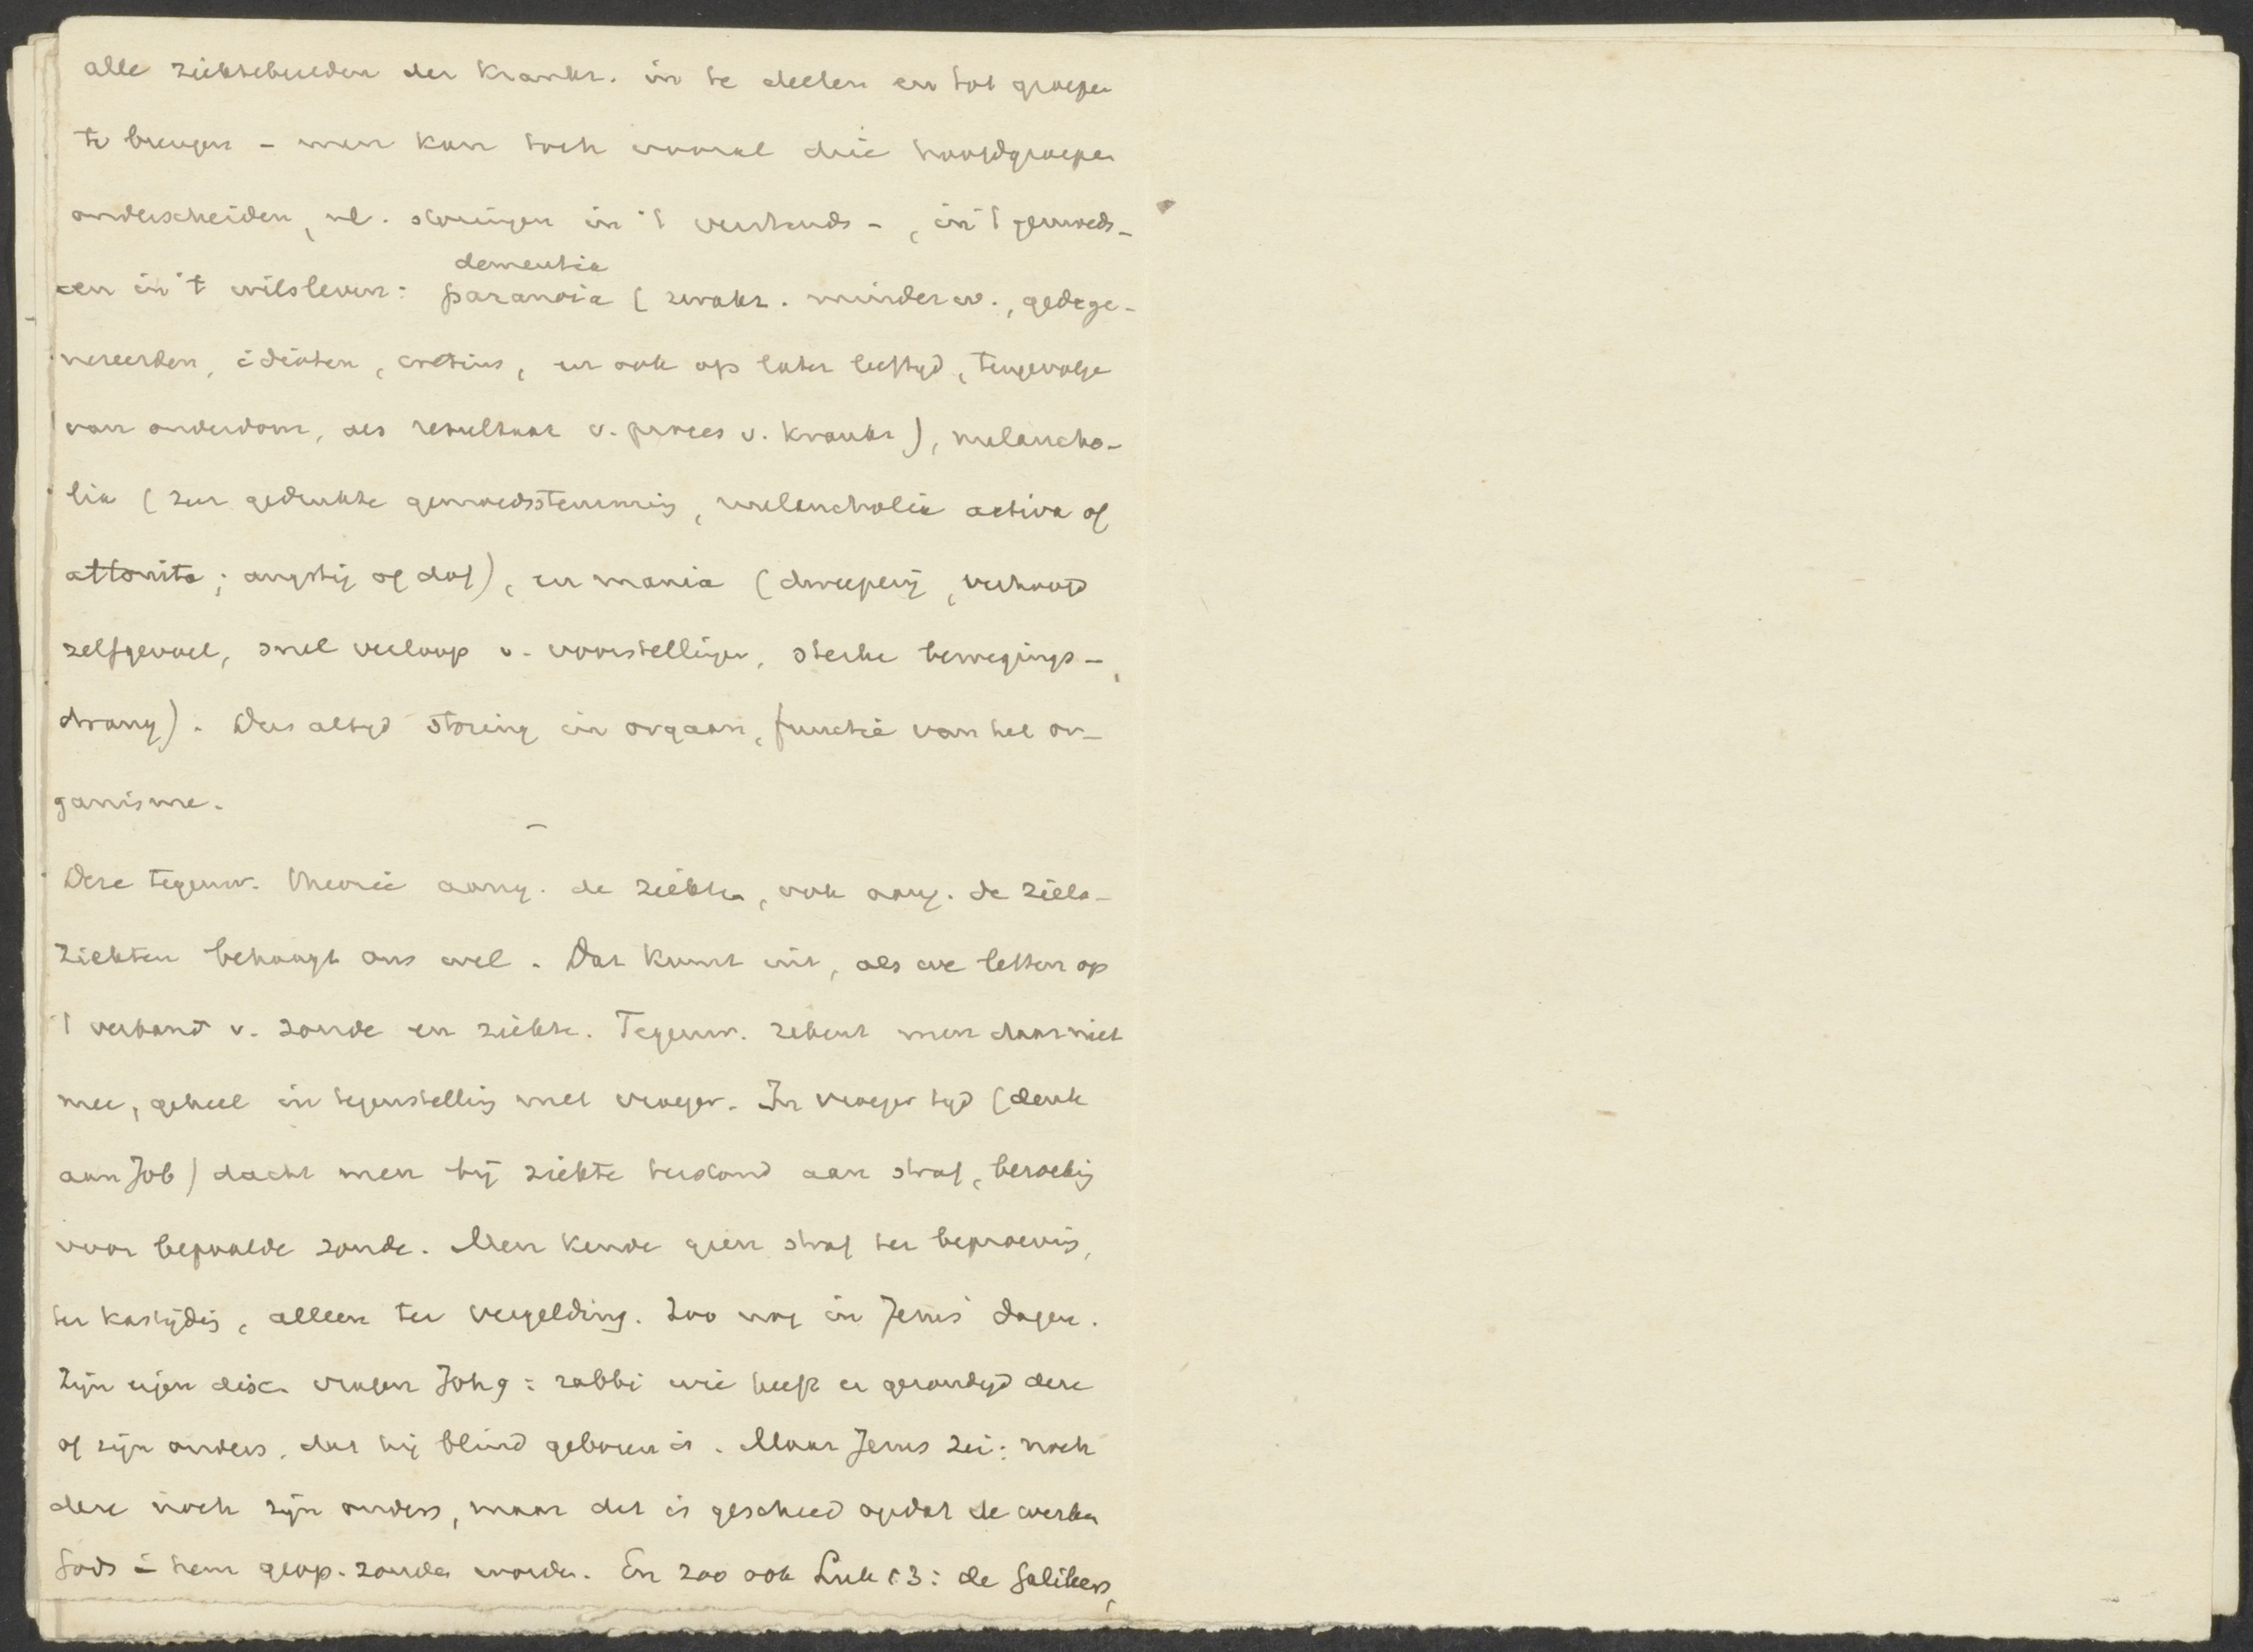 alle ziektebeelden der krankz. in te deelen en tot groepen
te brengen - men kan toch vooral drie hoofdgroepen
onderscheiden, nl. storingen in 't verstands -, in 't gemoeds -
en in 't wilsleven: dementia
paranoia (zwakz. minderw., gedege-
nereerden, idioten, cretins, en ook op later leeftijd, tengevolge
van ouderdom, als resultaat v. proces v. krankz), melancho-
lia (zeer gedrukte gemoedsstemming, melancholia activa of
attonita; angstig of dof), en mania (dweeperij, verhoogd
zelfgevoel, snel verloop v. voorstellingen, sterke bewegings-
drang). Dus altijd storing in orgaan, functie van het or-
ganisme.
-
Deze tegenw. theorie aang. de ziekten, ook aang. de ziels-
ziekten behaagt ons wel. Dat komt uit, als we letten op
't verband v. zonde en ziekte. Tegenw. rekent men daar niet
mee, geheel in tegenstelling met vroeger. In vroeger tijd (denk
aan Job) dacht men bij ziekte terstond aan straf,
voor bepaalde zonde. Men kende geen straf ter beproeving,
ter kastijding, alleen ter vergelding. Zoo nog in Jezus' dagen.
Zijn eigen disc. vragen Joh 9: rabbi wie heeft er gezondigd deze
of zijn ouders, dat hij blind geboren is. Maar Jezus zei: noch
deze noch zijn ouders, maar dit is geschied opdat de werken
Gods in hem geop. zouden worden. En zoo ook Luk 13: de Galileers,